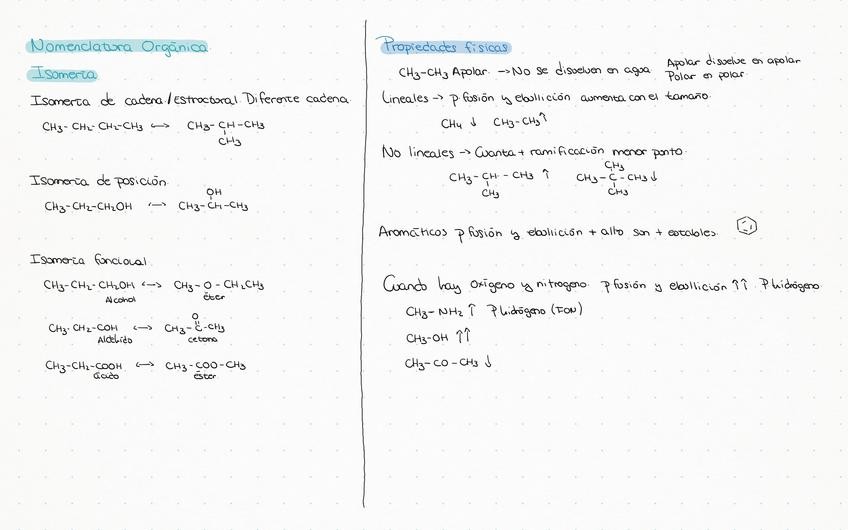 Nomenclatura Orgánica
Isomería
Isomería de cadena/Estructural. Diferente cadena
CH3-CH2-CH2-CH3 <-> CH3-CH-CH3
CH3
Isomería de posición
OH
CH3-CH2-CH2OH <-> CH3-CH-CH3
Isomería funcional
CH3-CH2-CH2OH <-> CH3-O-CH2CH3
Alcohol éter
O
CH3-CH2-COH <-> CH3-C-CH3
Aldehído cetona
CH3-CH2-COOH <-> CH3-COO-CH3
ácido éster
Propiedades físicas
CH3-CH3 Apolar -> No se disuelven en agua
Apolar disuelve en apolar
Polar en polar
Lineales -> p fusión y ebullición aumenta con el tamaño
CH4 ↓ CH3-CH3 ↑
No lineales -> Cuanta + ramificación menor punto
CH3
CH3-CH-CH3 ↑ CH3-C-CH3 ↓
CH3 CH3
Aromáticos p fusión y ebullición + alto son + estables
Cuando hay oxígeno y nitrógeno p fusión y ebullición ↑↑ P hidrógeno
CH3-NH2 ↑ P hidrógeno (FON)
CH3-OH ↑↑
CH3-CO-CH3 ↓